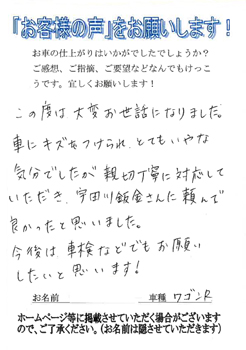 「お客様の声」をお願いします！
お車の仕上がりはいかがでしたでしょうか？
ご感想、ご指摘、ご要望などなんでもけっこ
うです。宜しくお願いします！
この度は大変お世話になりました。
車にキズをつけられ、とてもいやな
気分でしたが親切丁寧に対応して
いただき、宇田川鈑金さんに頼んで
良かったと思いました。
今後は、車検などでもお願い
したいと思います！
お名前 車種 ワゴンR
ホームページ等に掲載させていただく場合がございます
ので、ご了承ください。（お名前は隠させていただきます）